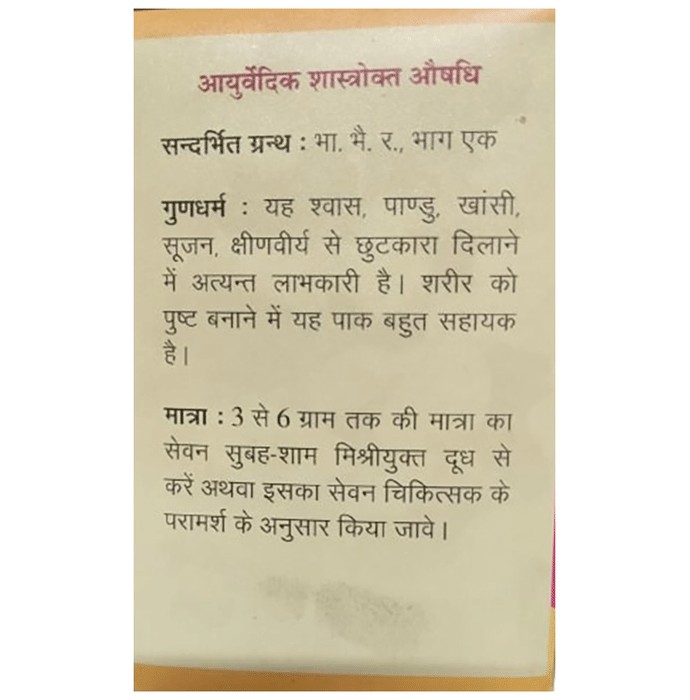 आयुर्वेदिक शास्त्रोक्त औषधि
सन्दर्भित ग्रन्थ : भा. भै. र., भाग एक
गुणधर्म : यह श्वास, पाण्डु, खांसी,
सूजन, क्षीणवीर्य से छुटकारा दिलाने
में अत्यन्त लाभकारी है। शरीर को
पुष्ट बनाने में यह पाक बहुत सहायक
है।
मात्रा : 3 से 6 ग्राम तक की मात्रा का
सेवन सुबह-शाम मिश्रीयुक्त दूध से
करें अथवा इसका सेवन चिकित्सक के
परामर्श के अनुसार किया जावे।